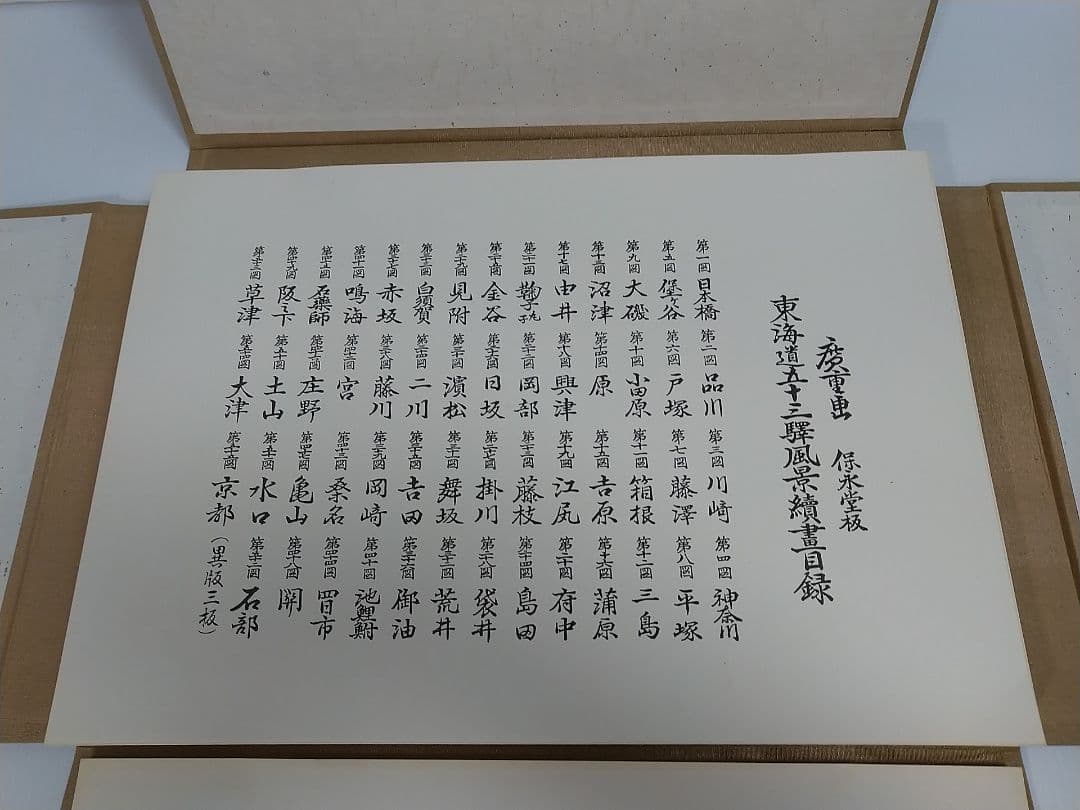 廣重画 保永堂板
東海道五十三驛風景續畫目録
第一図 日本橋 第二図 品川 第三図 川崎 第四図 神奈川
第五図 堡ヶ谷 第六図 戸塚 第七図 藤澤 第八図 平塚
第九図 大磯 第十図 小田原 第十一図 箱根 第十二図 三島
第十三図 沼津 第十四図 原 第十五図 吉原 第十六図 蒲原
第十七図 由井 第十八図 興津 第十九図 江尻 第二十図 府中
第二十一図 鞠子 第二十二図 岡部 第二十三図 藤枝 第二十四図 島田
第二十五図 金谷 第二十六図 日坂 第二十七図 掛川 第二十八図 袋井
第二十九図 見附 第三十図 濱松 第三十一図 舞坂 第三十二図 荒井
第三十三図 白須賀 第三十四図 二川 第三十五図 吉田 第三十六図 御油
第三十七図 赤坂 第三十八図 藤川 第三十九図 岡崎 第四十図 池鯉鮒
第四十一図 鳴海 第四十二図 宮 第四十三図 桑名 第四十四図 四日市
第四十五図 石藥師 第四十六図 庄野 第四十七図 亀山 第四十八図 関
第四十九図 阪之下 第五十図 土山 第五十一図 水口 第五十二図 石部
第五十三図 草津 第五十四図 大津 第五十五図 京都
(異版三板)